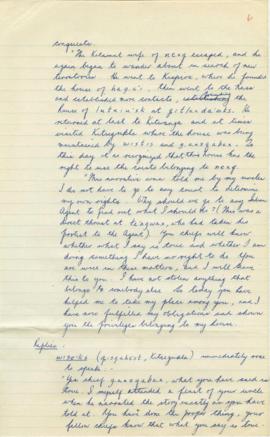 6
conquests.
"The Kitamat wife of neqt escaped, and he
again began to wander about in search of new
territories. He went to Kispiox, where he founded
the house of
Then went to the Nass
and established more contacts,
the
house of at gitladamks. He
returned at last to Kitwanga and at times
visited Kitsegukla where the house was being
maintained by and To
this day it is recognized that this house has the
right to use the crests belonging to
"This narrative was told me by my uncle
I do not have to go to any court to determine
my own rights. Why should we go to any Indian
Agent to find out what I should do? (This was a
direct threat at who had taken his
protest to the Agent) You chiefs will know
whether what I say is true and whether I am
doing something I have no right to do. You
are wise in these matters, and I will leave
this to you. I have not stolen anything that
belongs to somebody else. So today you have
helped me to take my place among you, and I
have now fulfilled my obligations and shown
you the privileges belonging to my house.
Replies:
Kitsegukla) immediately rose
to speak:-
"You chief what you have said is
true. I myself attended a feast of your uncle
when he narrated the story exactly as you have
told it. You have done the proper thing; your
fellow chiefs know that what you say is true.